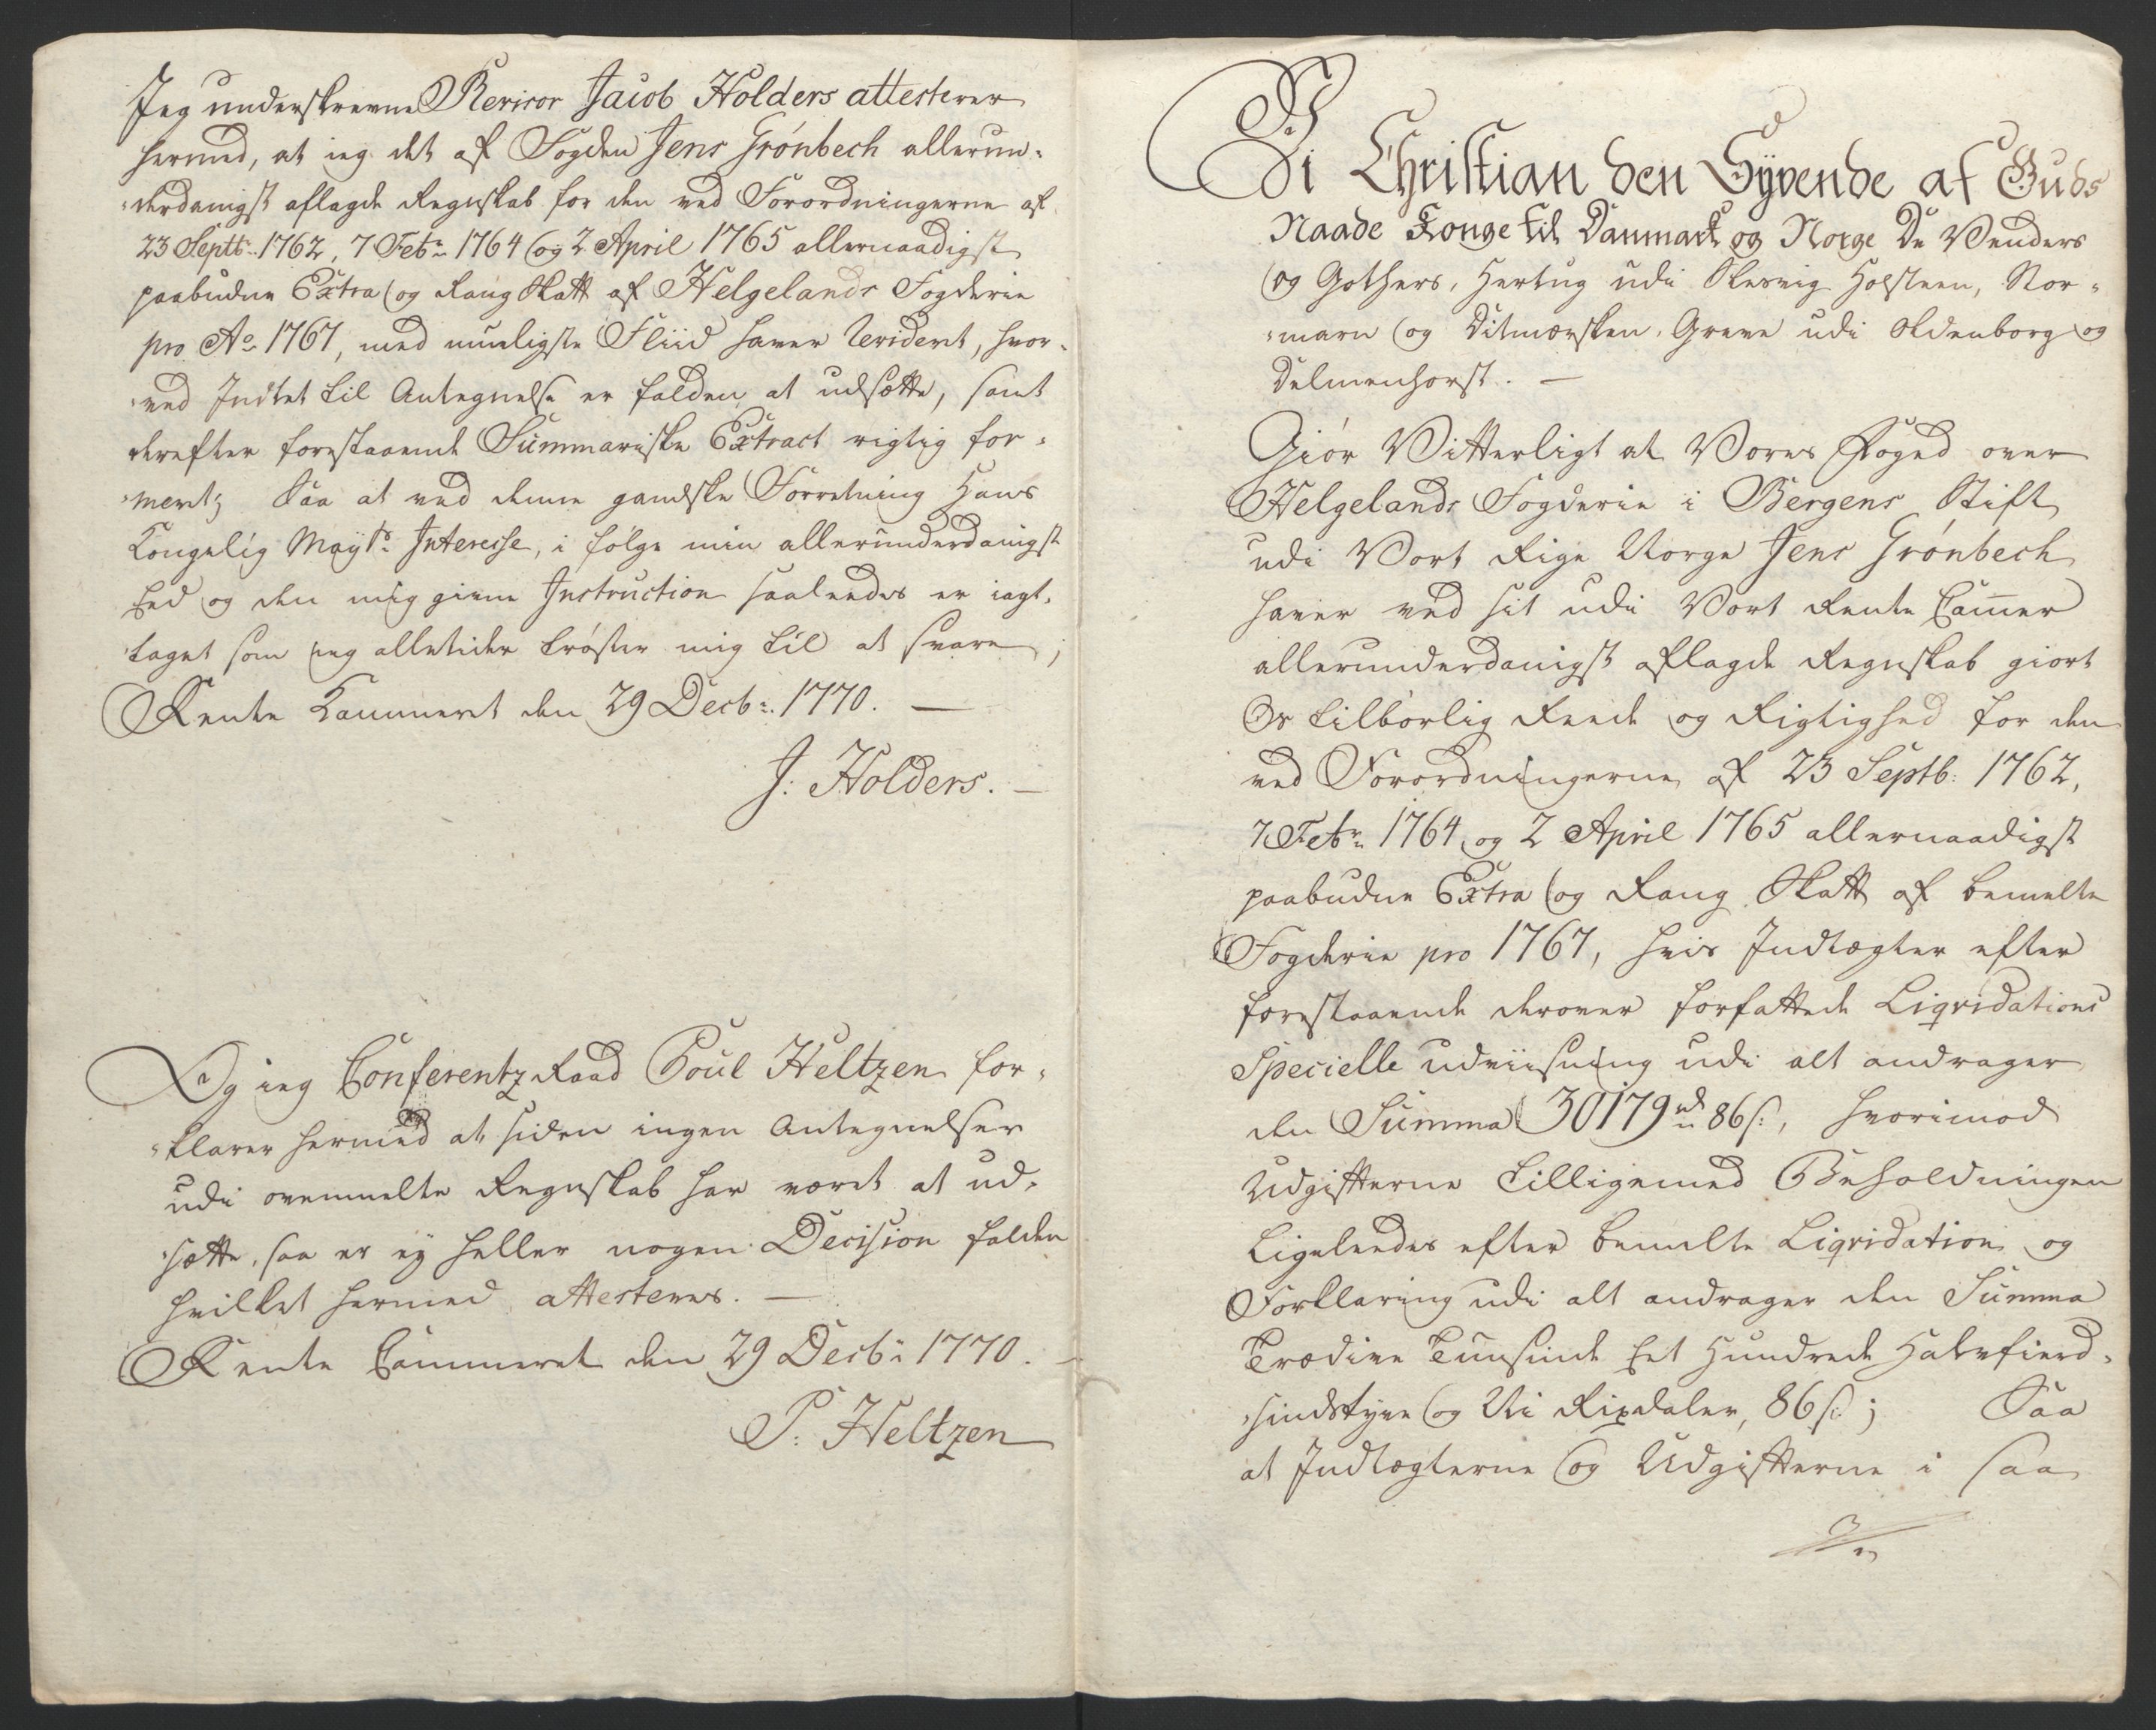 Jeg underskrevne Revisor Jacob Holders attesterer
hermed, at ieg det af Fogden Jens Grönbech allerun-
derdanigst aflagde Regnskab for den ved Forordningerne af
23 Septbr: 1762, 7 Febr: 1764 og 2 April 1765 allernaadigst
paabudne Extra og Rang Skatt af Helgelands Fogderie
pro Ao 1767, med mueligste Fliid haver Reviderit, hvor-
ved Indtet til Antegnelse er falden at udsætte, samt
derefter forestaaende Summariske Extract rigtig for-
merit; Saa at ved denne gandske Forretning Hans
Kongelig Mayts: Interesse, i fölge min allerunderdanigst
Eed og den mig givne Instruction saaledes er iagt-
taget som ieg alletider tröster mig til at svare;
Rente Kammeret den 29 Decbr: 1770. —
J: Holders. —
Og ieg Conferentz Raad Poul Heltzen for-
klarer hermed at siden ingen Antegnelser
udi ovenmelte Regnskab har været at ud-
sætte, saa er ey heller nogen Decision falden
hvilket hermed attesteres. —
Rente Cammeret den 29 Decbr: 1770. —
P: Heltzen
Vi Christian den Syvende af Guds
Naade Konge til Danmark og Norge De Venders
og Gothers, Hertug udi Slesvig Holsteen, Stor-
marn og Ditmærsken, Greve udi Oldenborg og
Delmenhorst. —
Giör Vitterligt at Vores Foged over
Helgelands Fogderie i Bergens Stift
udi Vort Rige Norge Jens Grönbech
haver ved sit udi Vort Rente Camer
allerunderdanigst aflagde Regnskab giort
Os tilbörlig Reede og Rigtighed for den
ved Forordningerne af 23 Septb: 1762,
7 Febr: 1764 og 2 April 1765 allernaadigst
paabudne Extra og Rang Skatt af bemelte
Fogderie pro 1767, hvis Indtægter efter
forestaaende derover forfattede Liqvidations
Specielle udviisning udi alt andrager
den Summa 30179 rd 86 s:, hvorimod
Udgifterne tilligemed Beholdningen
Ligeleedes efter bemelte Liqvidation og
Forklaring udi alt andrager den Summa
Trædive Tuusinde Eet Hundrede Halvfierd-
sindstyve og Ni Rixdaler, 86 s:; Saa
at Indtægterne og Udgifterne i saa